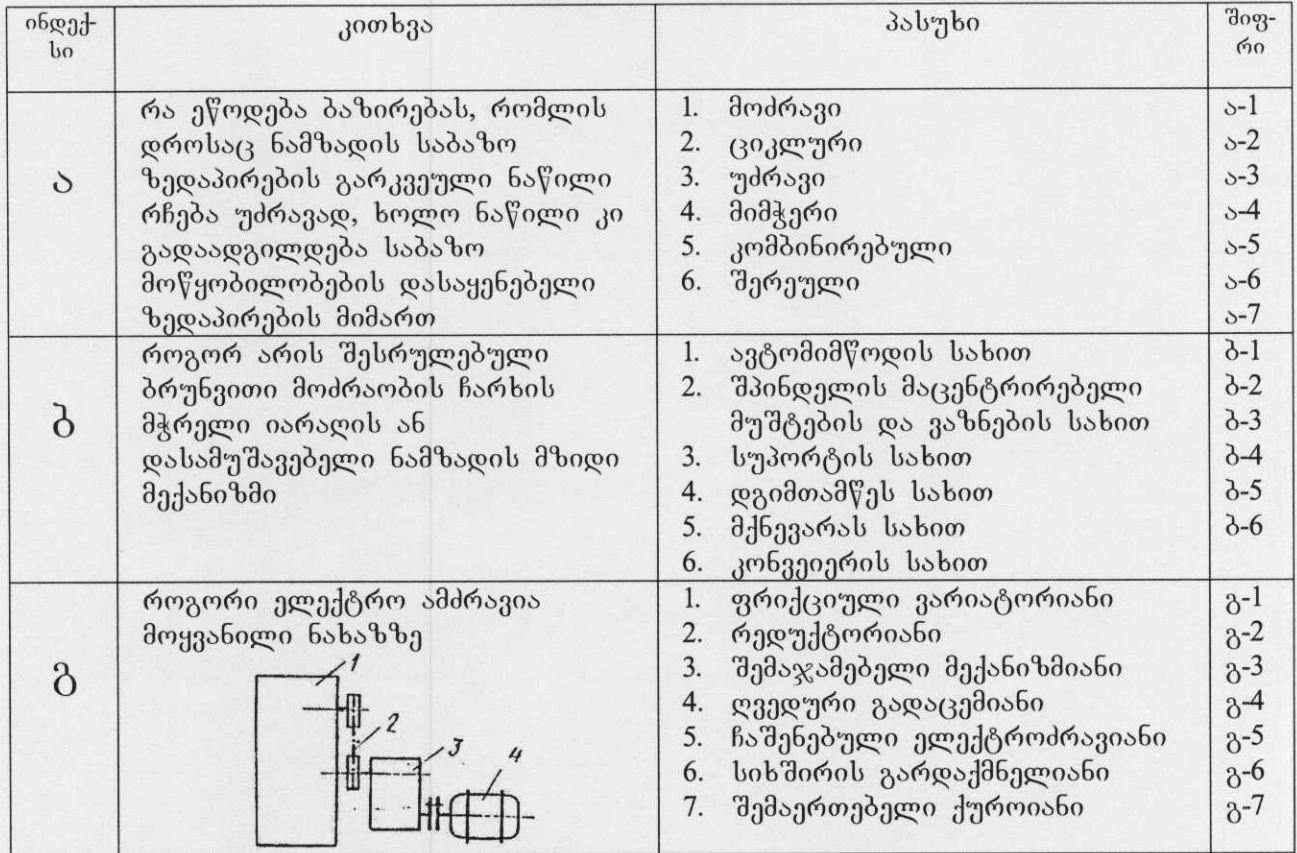 ინდექ-
სი
კითხვა
პასუხი
შიფ-
რი
ა
რა ეწოდება ბაზირებას, რომლის
დროსაც ნამზადის საბაზო
ზედაპირების გარკვეული ნაწილი
რჩება უძრავად, ხოლო ნაწილი კი
გადაადგილდება საბაზო
მოწყობილობების დასაყენებელი
ზედაპირების მიმართ
1. მოძრავი
2. ციკლური
3. უძრავი
4. მიმჭერი
5. კომბინირებული
6. შერეული
ა-1
ა-2
ა-3
ა-4
ა-5
ა-6
ა-7
ბ
როგორ არის შესრულებული
ბრუნვითი მოძრაობის ჩარხის
მჭრელი იარაღის ან
დასამუშავებელი ნამზადის მზიდი
მექანიზმი
1. ავტომიმწოდის სახით
2. შპინდელის მაცენტრირებელი
მუშტების და ვაზნების სახით
3. სუპორტის სახით
4. დგიმთამწეს სახით
5. მქნევარას სახით
6. კონვეიერის სახით
ბ-1
ბ-2
ბ-3
ბ-4
ბ-5
ბ-6
გ
როგორი ელექტრო ამძრავია
მოყვანილი ნახაზზე
1
2
3
4
1. ფრიქციული ვარიატორიანი
2. რედუქტორიანი
3. შემაჯამებელი მექანიზმიანი
4. ღვედური გადაცემიანი
5. ჩაშენებული ელექტროძრავიანი
6. სიხშირის გარდაქმნელიანი
7. შემაერთებელი ქუროიანი
გ-1
გ-2
გ-3
გ-4
გ-5
გ-6
გ-7